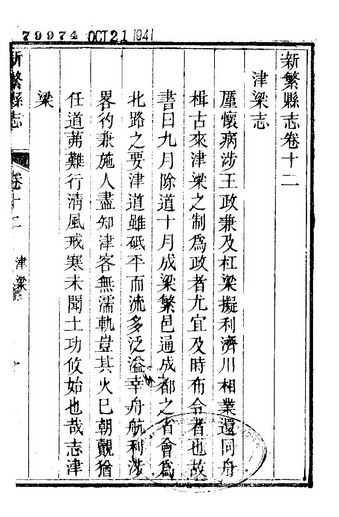 79974 OCT 21 1941
新繁縣志卷十二
津梁志
厲懷病涉王政兼及杠梁擬利濟川相業還同舟
楫古來津梁之制為政者尤宜及時布令者也故
書曰九月除道十月成梁繁邑通成都之省會為
北路之要津道雖砥平而流多泛溢幸舟航利涉
畧彴兼施人盡知津客無濡軌豈其火巳朝覿猶
任道茀難行清風戒寒未聞土功攸始也哉志津
梁
新繁縣志
卷十二
津梁